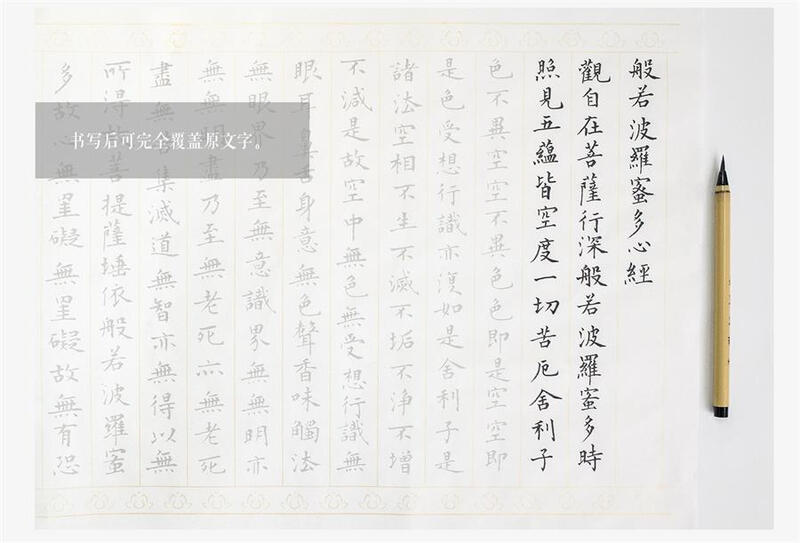 般若波羅蜜多心經
觀自在菩薩行深般若波羅蜜多時
照見五蘊皆空度一切苦厄舍利子
色不異空空不異色色即是空空即
是色受想行識亦復如是舍利子是
諸法空相不生不滅不垢不淨不增
不減是故空中無色無受想行識無
眼耳鼻舌身意無色聲香味觸法
無眼界乃至無意識界無無明亦
無無明盡乃至無老死亦無老死
盡無苦集滅道無智亦無得以無
所得故菩提薩埵依般若波羅蜜
多故心無罣礙無罣礙故無有恐
书写后可完全覆盖原文字。